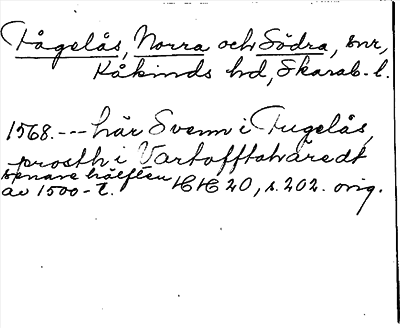 Fågelås, Norra och Södra, snr,
Kåkinds hd, Skarab. l.
1568. --- här Svenn i Fugelås,
prosth i Vartofftahäredt
senare hälften
av 1500-t. HH 20, s. 202. orig.